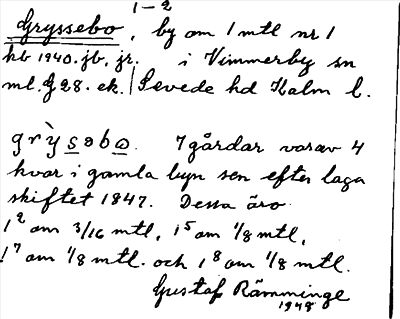 1-2
Gryssebo, by om 1 mtl nr 1
hb 1940. jb. jr. i Vimmerby sn
ml. g 28. ek. | Sevede hd Kalm l.
grỳsəbo. 7 gårdar varav 4
kvar i gamla byn sen efter laga
skiftet 1847. Dessa äro
1² om 3/16 mtl, 1⁵ om 1/8 mtl,
1⁷ om 1/8 mtl. och 1⁸ om 1/8 mtl.
Gustaf Rämminge
1948